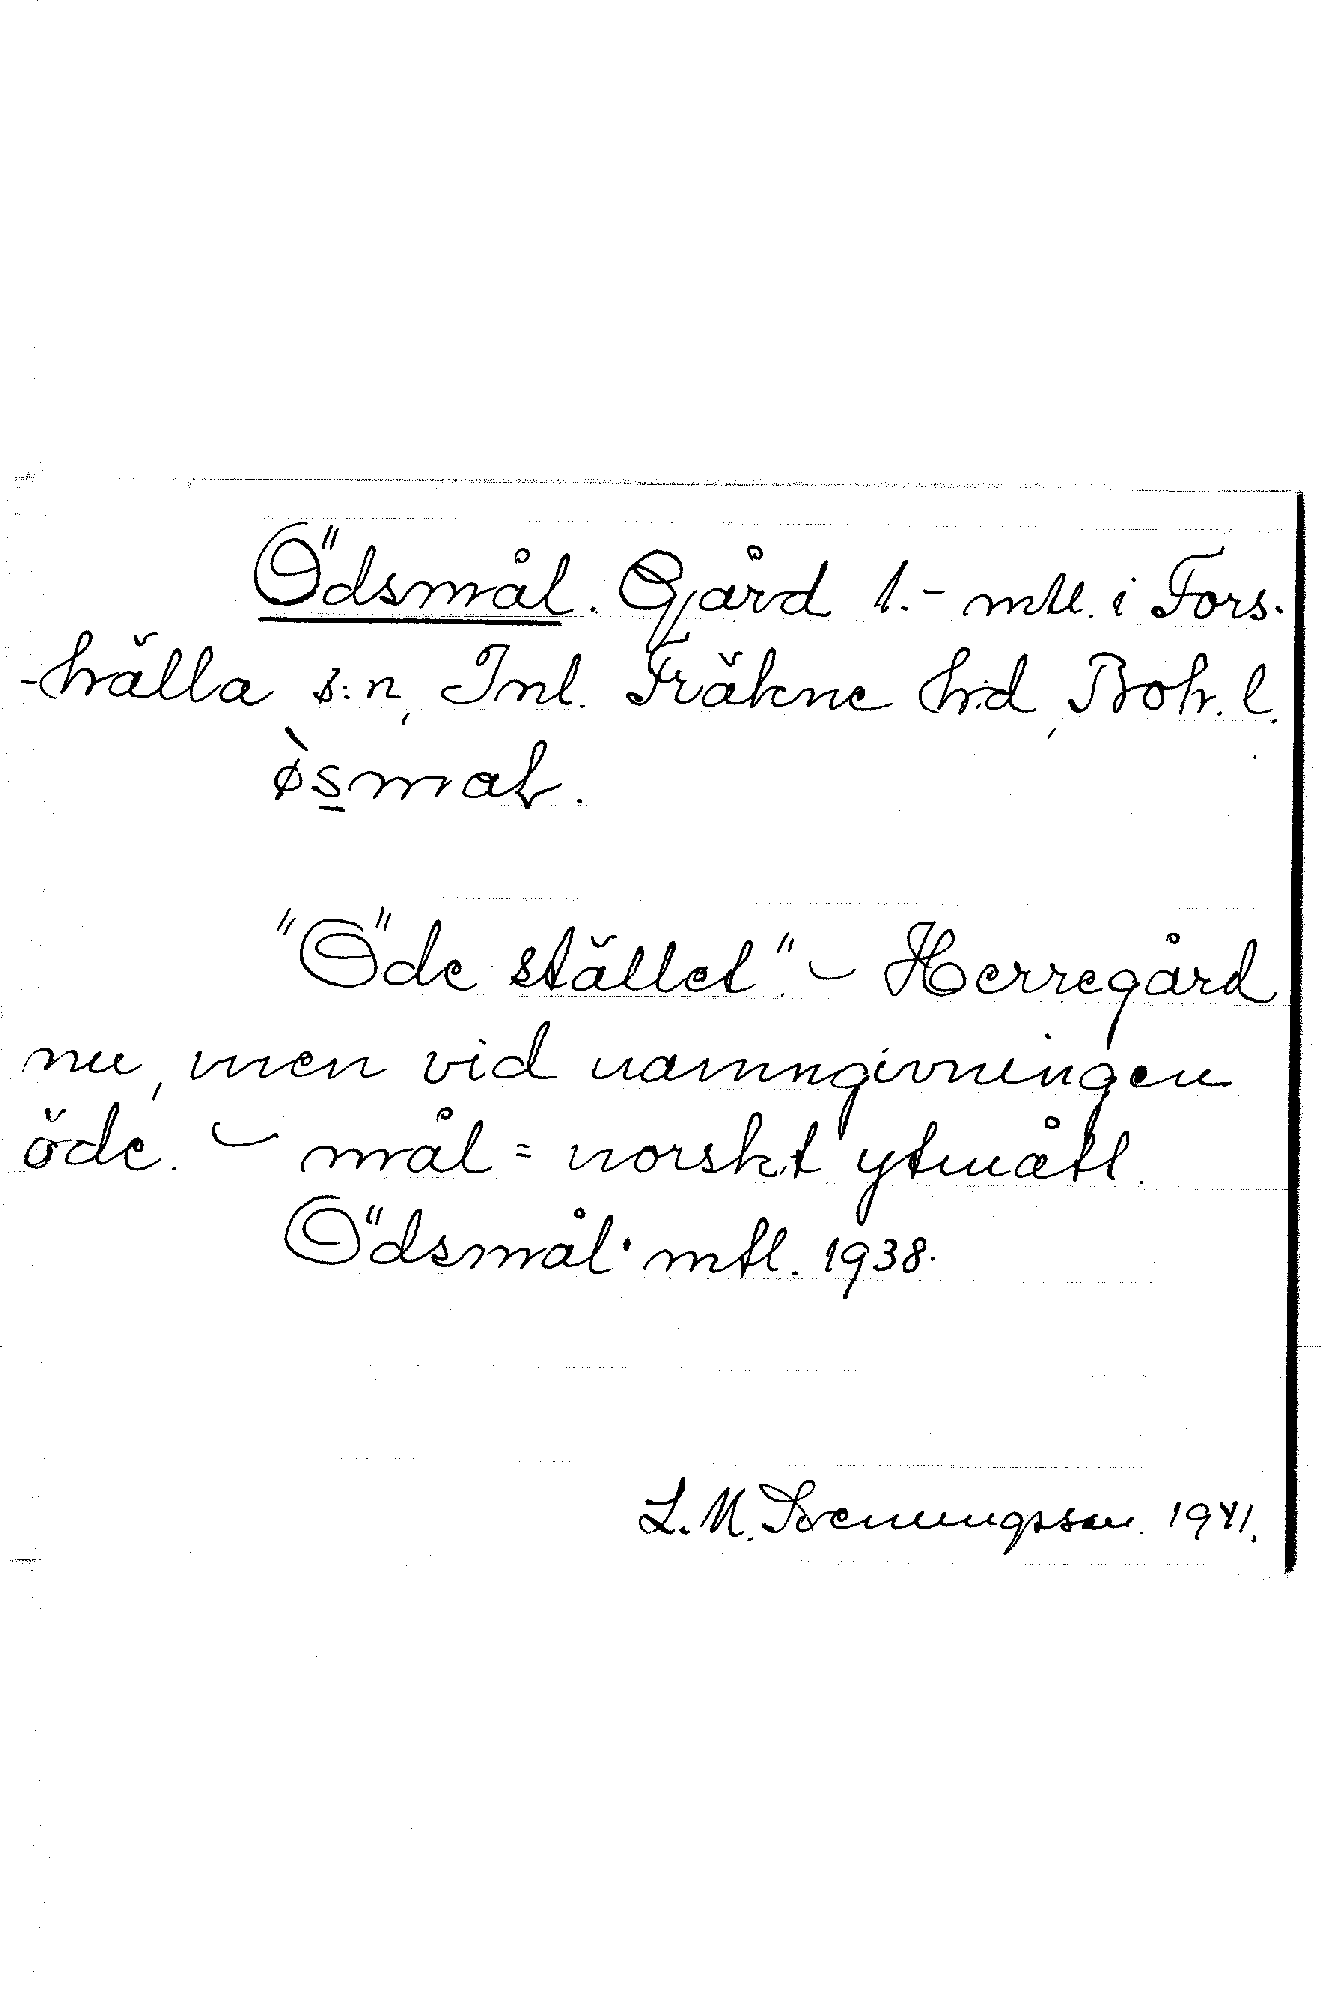 Ödsmål. Gård 1.- mtl. i Fors-
-hälla s:n, Inl. Fräkne hd, Boh. l.
"Öde stället". - Herregård
nu, men vid namngivningen
öde. - mål = norskt ytmått.
Ödsmål. mtl. 1938.
L. M. Svenungsson. 1941.